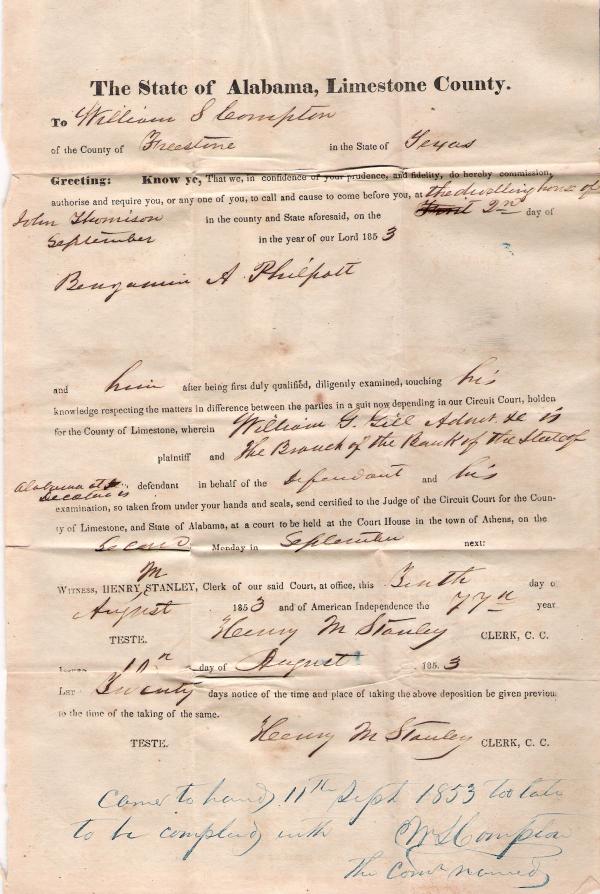 The State of Alabama, Limestone County.
To William S Compton
of the County of Freestone in the State of Texas
Greeting: Know ye, That we, in confidence of your prudence, and fidelity, do hereby commission,
authorise and require you, or any one of you, to call and cause to come before you, at the dwelling house of
John Thomison in the county and State aforesaid, on the 2nd day of
September in the year of our Lord 1853
Benjamin A Philpott
and him after being first duly qualified, diligently examined, touching his
knowledge respecting the matters in difference between the parties in a suit now depending in our Circuit Court, holden
for the County of Limestone, wherein William G. Gill Admr. &c is
plaintiff and The Branch of the Bank of the State of
Alabama at Decatur is defendant in behalf of the Defendant and his
examination, so taken from under your hands and seals, send certified to the Judge of the Circuit Court for the Coun-
ty of Limestone, and State of Alabama, at a court to be held at the Court House in the town of Athens, on the
Second Monday in September next:
M
Witness, HENRY STANLEY, Clerk of our said Court, at office, this Tenth day o
August 1853 and of American Independence the 77th year
TESTE. Henry M Stanley CLERK, C. C.
Issued 10th day of August 1853
Let Twenty days notice of the time and place of taking the above deposition be given previou
to the time of the taking of the same.
TESTE. Henry M Stanley CLERK, C. C.
Came to hand 11th Sept 1853 too late
to be complied with Wm S Compton
the comr named